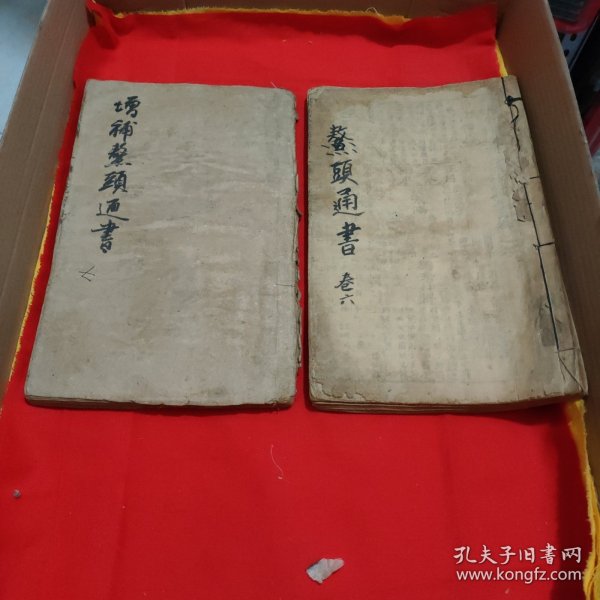 增補鰲頭通書
七
鰲頭通書
卷六
孔夫子旧书网
www.kongfz.com